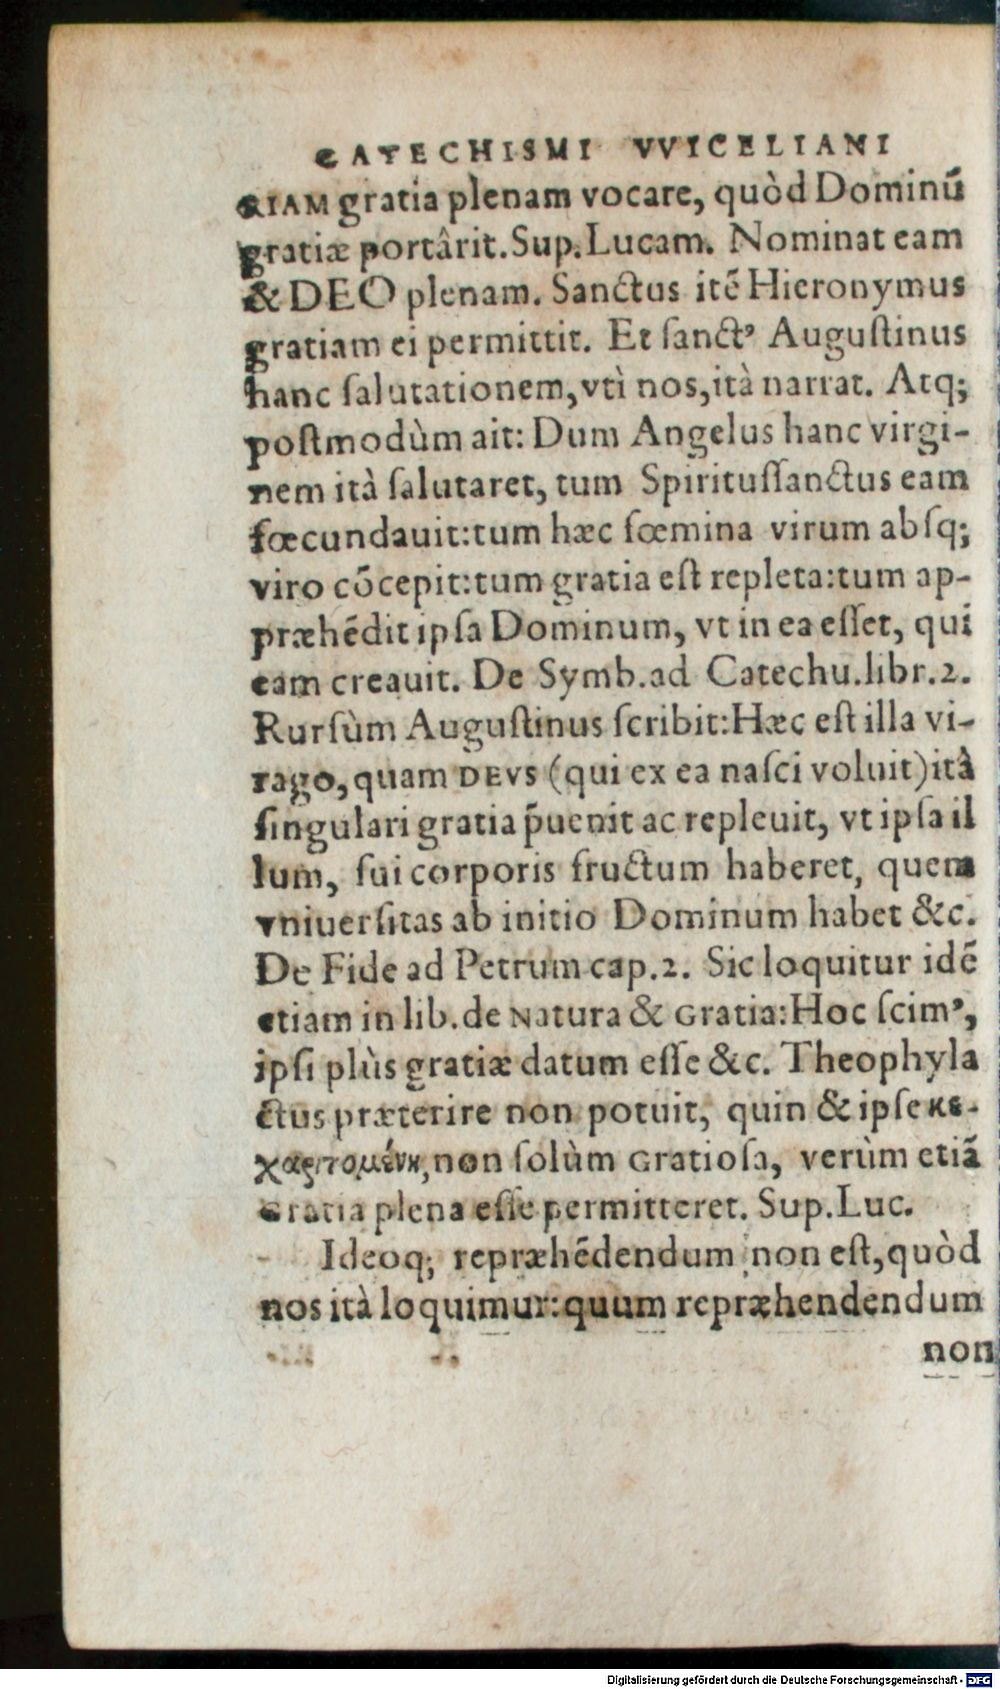 CATECHISMI VVICELIANI
RIAM gratia plenam vocare, quòd Dominū
gratiæ portârit. Sup. Lucam. Nominat eam
& DEO plenam. Sanctus itē Hieronymus
gratiam ei permittit. Et ſanctꝰ Auguſtinus
hanc ſalutationem, vtì nos, ità narrat. Atq;
poſtmodùm ait: Dum Angelus hanc virgi-
nem ità ſalutaret, tum Spirituſſanctus eam
fœcundauit: tum hæc fœmina virum abſq;
viro cōcepit: tum gratia eſt repleta: tum ap-
præhēdit ipſa Dominum, vt in ea eſſet, qui
eam creauit. De Symb. ad Catechu. libr. 2.
Rurſùm Auguſtinus ſcribit: Hæc eſt illa vi-
rago, quam DEVS (qui ex ea naſci voluit) ità
ſingulari gratia p̄uenit ac repleuit, vt ipſa il
lum, ſui corporis fructum haberet, quem
vniuerſitas ab initio Dominum habet &c.
De Fide ad Petrum cap. 2. Sic loquitur idē
etiam in lib. de Natura & Gratia: Hoc ſcimꝰ,
ipſi plùs gratiæ datum eſſe &c. Theophyla
ctus præterire non potuit, quin & ipſe κε-
χαριτομένη, non ſolùm Gratioſa, verùm etiā
Gratia plena eſſe permitteret. Sup. Luc.
Ideoq; repræhēdendum non eſt, quòd
nos ità loquimur: quum repræhendendum
non
Digitalisierung gefördert durch die Deutsche Forschungsgemeinschaft - DFG